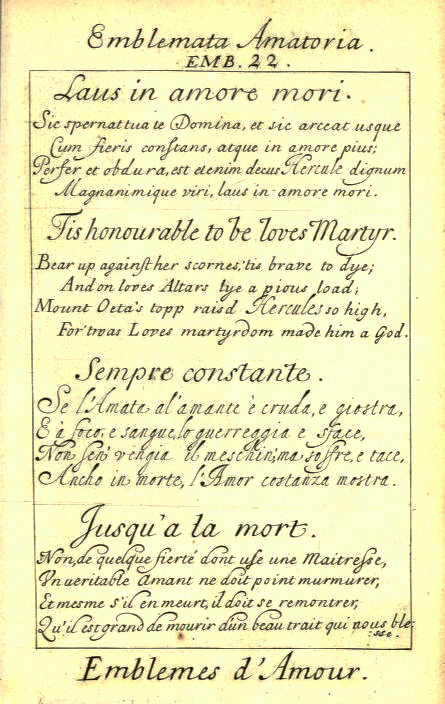 Emblemata Amatoria.
EMB. 22.
Laus in amore mori.
Sic spernat tua te Domina, et sic arceat usque
Cum fieris constans, atque in amore pius;
Perfer et obdura, est etenim decus Hercule dignum
Magnanimique viri, laus in amore mori.
Tis honourable to be loves Martyr.
Bear up against her scornes, 'tis brave to dye;
And on loves Altars lye a pious load;
Mount Oeta's topp rais'd Hercules so high,
For 'twas Loves martyrdom made him a God.
Sempre constante.
Se l'Amata al'amante è cruda, e giostra,
E à foco, e sangue, lo guerreggia e sface,
Non sen' vengia il meschin', ma soffre, e tace,
Ancho in morte, l'Amor costanza mostra.
Jusqu'a la mort.
Non, de quelque fierté dont use une Maitresse,
Un veritable Amant ne doit point murmurer,
Et mesme s'il en meurt, il doit se remontrer,
Qu'il est grand de mourir d'un beau trait qui nous ble:
:sse.
Emblemes d'Amour.